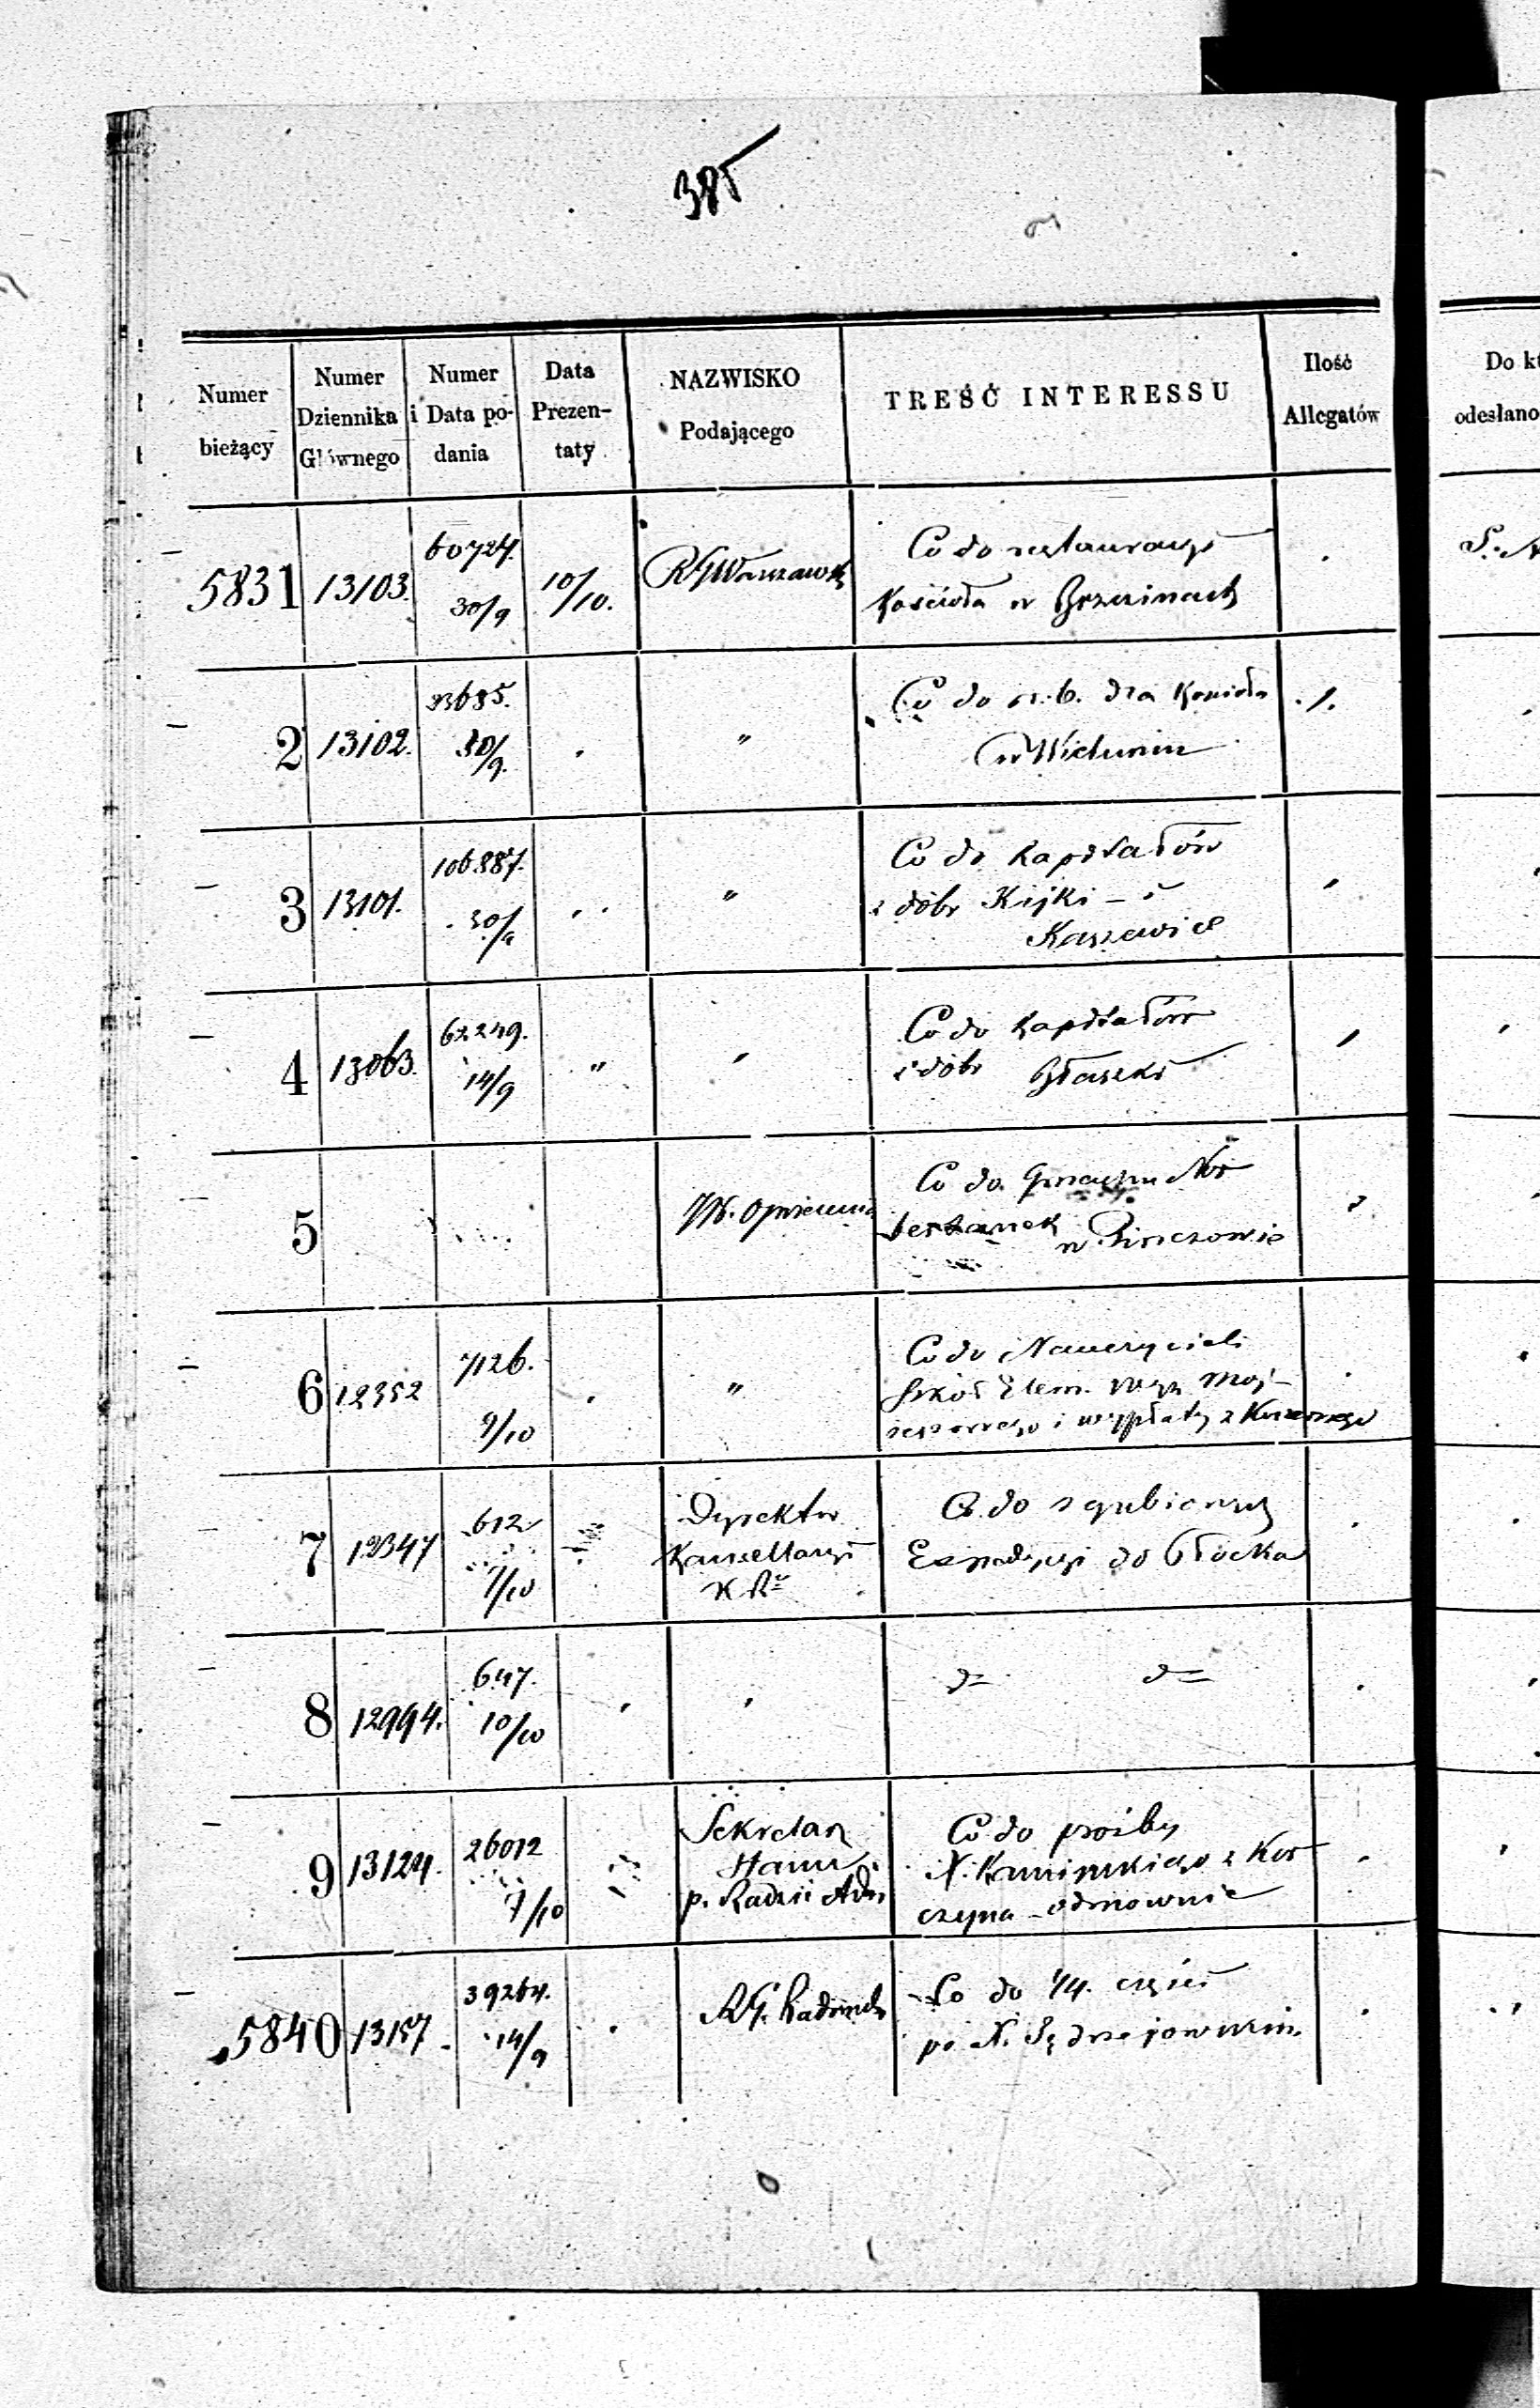 385
Numer bieżący
Numer Dziennika Głównego
Numer i Data podania
Data Prezentaty
NAZWISKO Podającego
TREŚĆ INTERESSU
Ilość Allegatów
Do k
odesłano
5831 13103. 60724. 30/9 10/10. RGWarszawsk Co do restauracyi
Kościoła w Brzezinach
2 13102. 30/9. " Co do r. b. dla Kościoła 1.
w Wieluniu
3 13101. 106887. 30/9 " Co do kapitałów
z dóbr Kijki – i
Kaszewice
4 13063. 62249. 14/9 " Co do kapitałów
z dóbr Błaszki
5 Co do gmachu Nor
bertanek w Pinczowie
6 12352 7126. 9/10 " Co do Nauczycieli
szkoł Elem. Wyzn Moj-
żeszowego i wypłaty z
7 12347 612 7/10 Dyrektor Co do zgubionej
Kancellaryi Expedycyi do Płocka
8 12994. 647. 10/10 d= d=
9 13124. 26012 7/10 Sekretarz Co do prośby
Stanu X. Kamińskiego z Kor
p. Radzie Adm czyna – odmownie
5840 13157. 39264. 14/9 RG. Radomsk Co do 1/4. części
po X. Jędrzejowskim